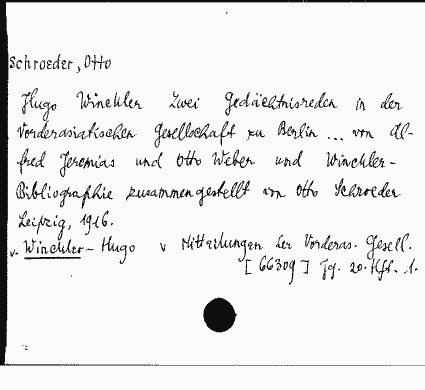 Schroeder, Otto
Hugo Winckler Zwei Gedächtnisreden in der
Vorderasiatischen Gesellschaft zu Berlin ... von Al-
fred Jeremias und Otto Weber und Winckler-
Bibliographie zusammengestellt von Otto Schroeder
Leipzig, 1916.
v. Winckler - Hugo v Mitteilungen der Vorderas. Gesell.
[66309] Jg. 20. Hft. 1.